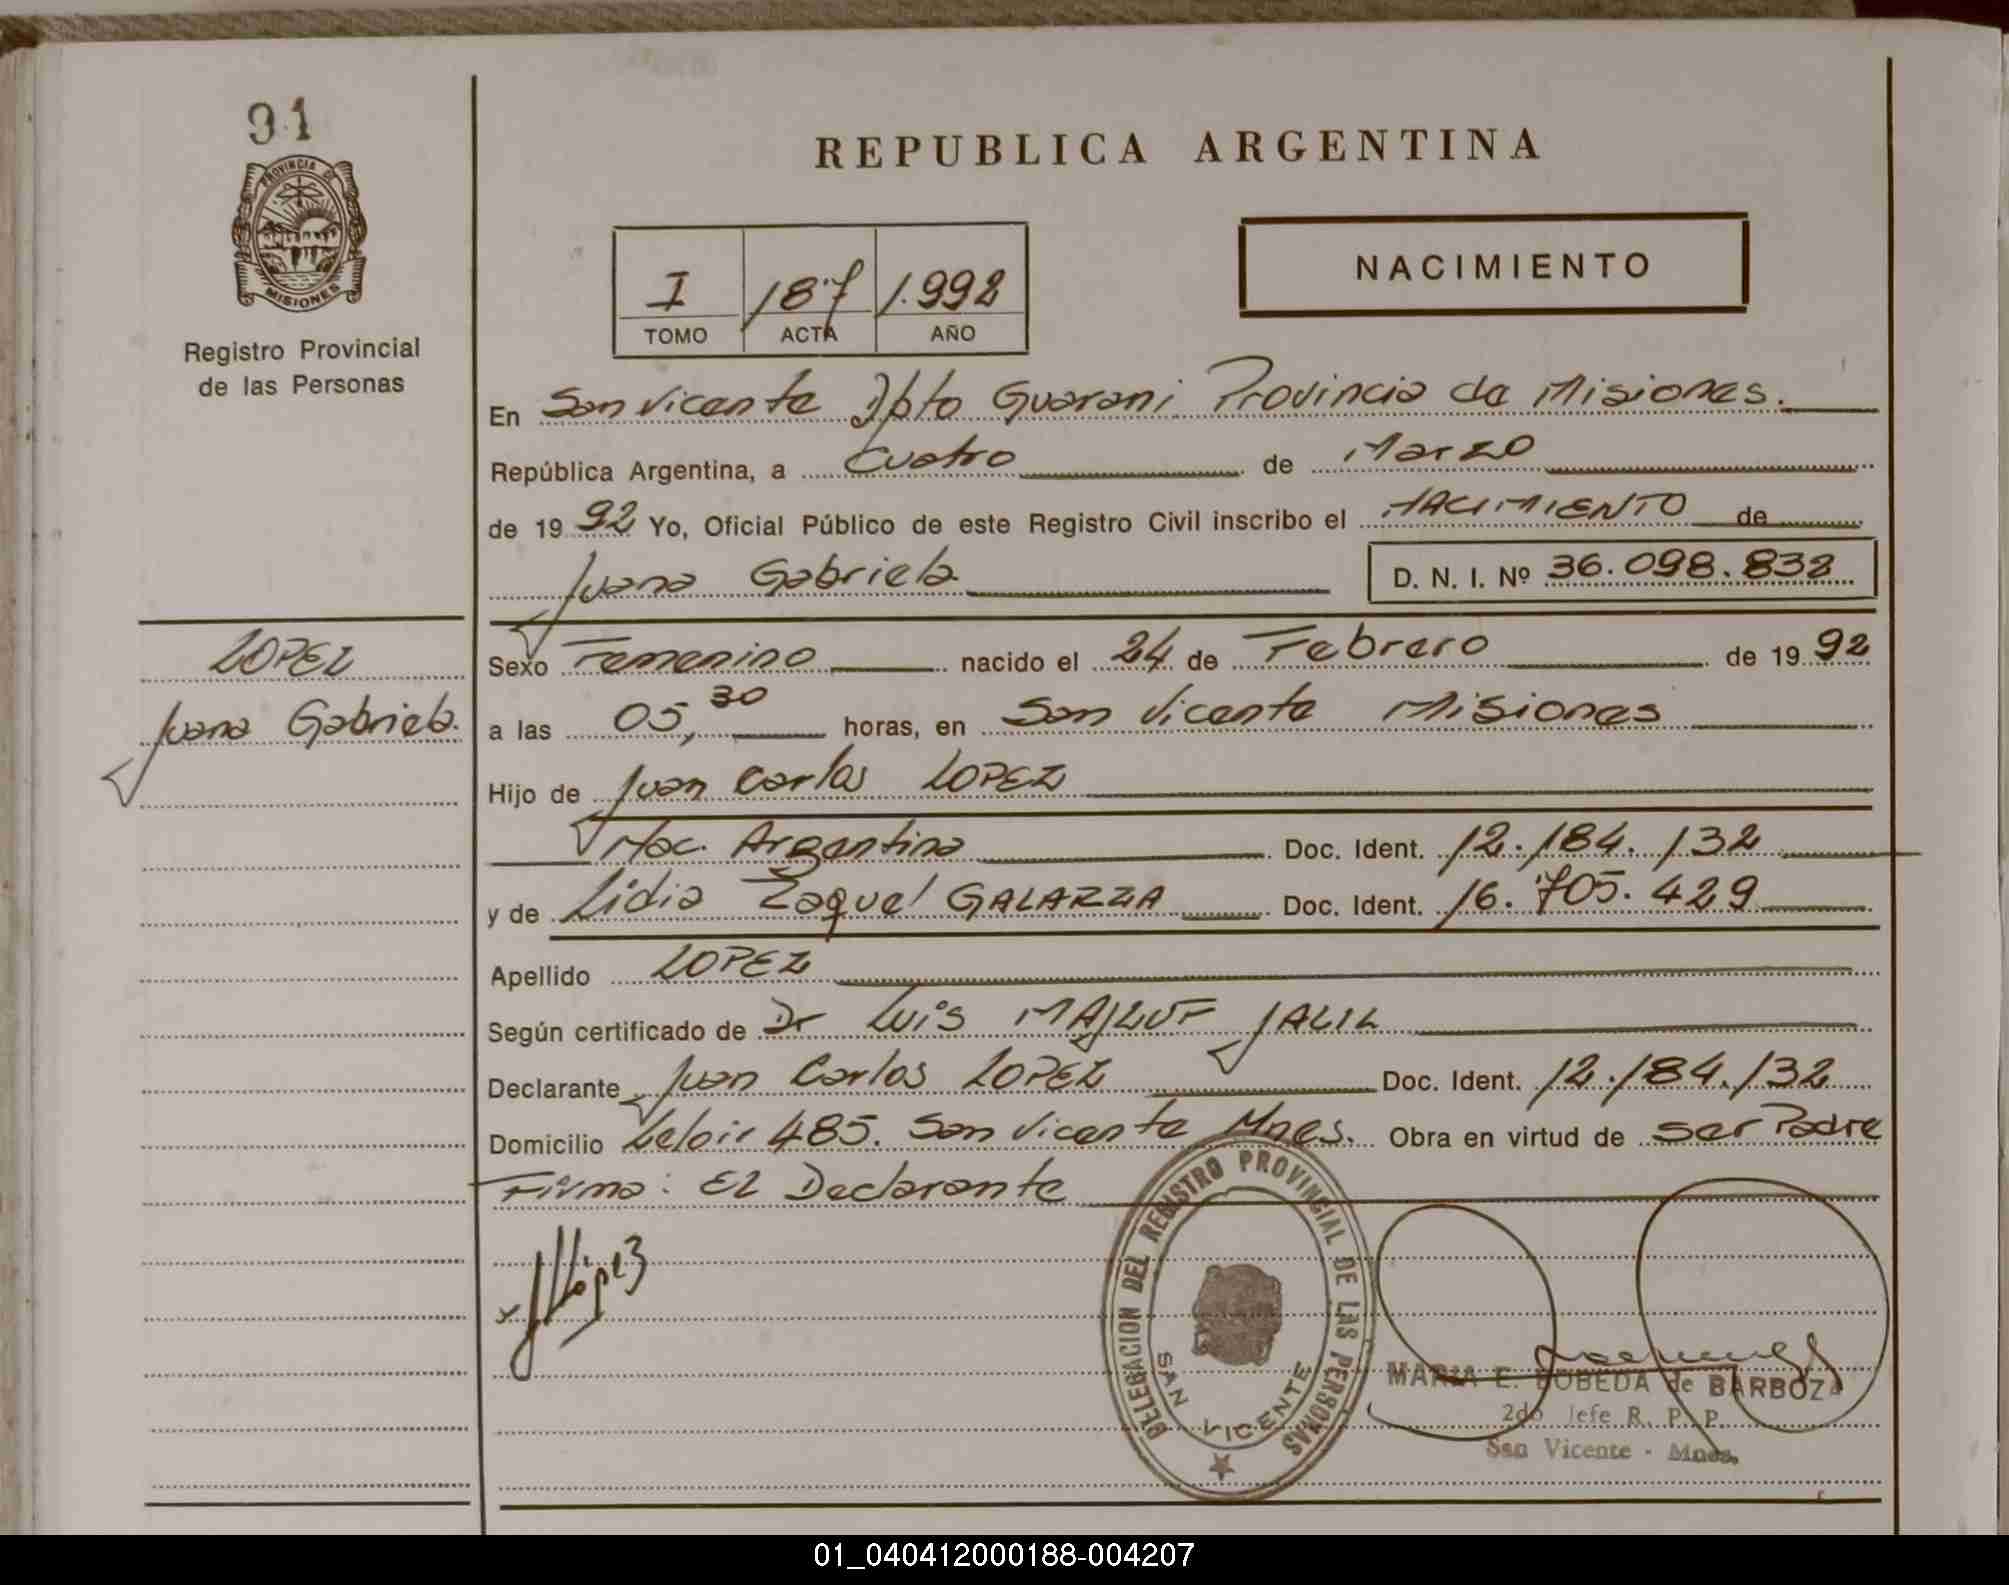 91
PROVINCIA DE
MISIONES
Registro Provincial
de las Personas
REPUBLICA ARGENTINA
NACIMIENTO
I 187 1.992
TOMO ACTA AÑO
En San Vicente Dpto Guarani Provincia de Misiones.
República Argentina, a Cuatro de Marzo
de 1992 Yo, Oficial Público de este Registro Civil inscribo el NACIMIENTO de
Juana Gabriela D. N. I. Nº 36.098.832
LOPEZ
Juana Gabriela.
Sexo Femenino nacido el 24 de Febrero de 1992
a las 05,30 horas, en San Vicente Misiones
Hijo de Juan Carlos LOPEZ
Nac. Argentina Doc. Ident. 12.184.132
y de Lidia Raquel GALARZA Doc. Ident. 16.705.429
Apellido LOPEZ
Según certificado de Dr Luis MAJLUF JALIL
Declarante Juan Carlos LOPEZ Doc. Ident. 12.184.132
Domicilio Leloir 485. San Vicente Mnes. Obra en virtud de ser Padre
Firma: El Declarante
López
DELEGACION DEL REGISTRO PROVINCIAL DE LAS PERSONAS
SAN VICENTE
MARIA E. BOBEDA de BARBOZA
2do Jefe R. P. P.
San Vicente - Mnes.
01_040412000188-004207